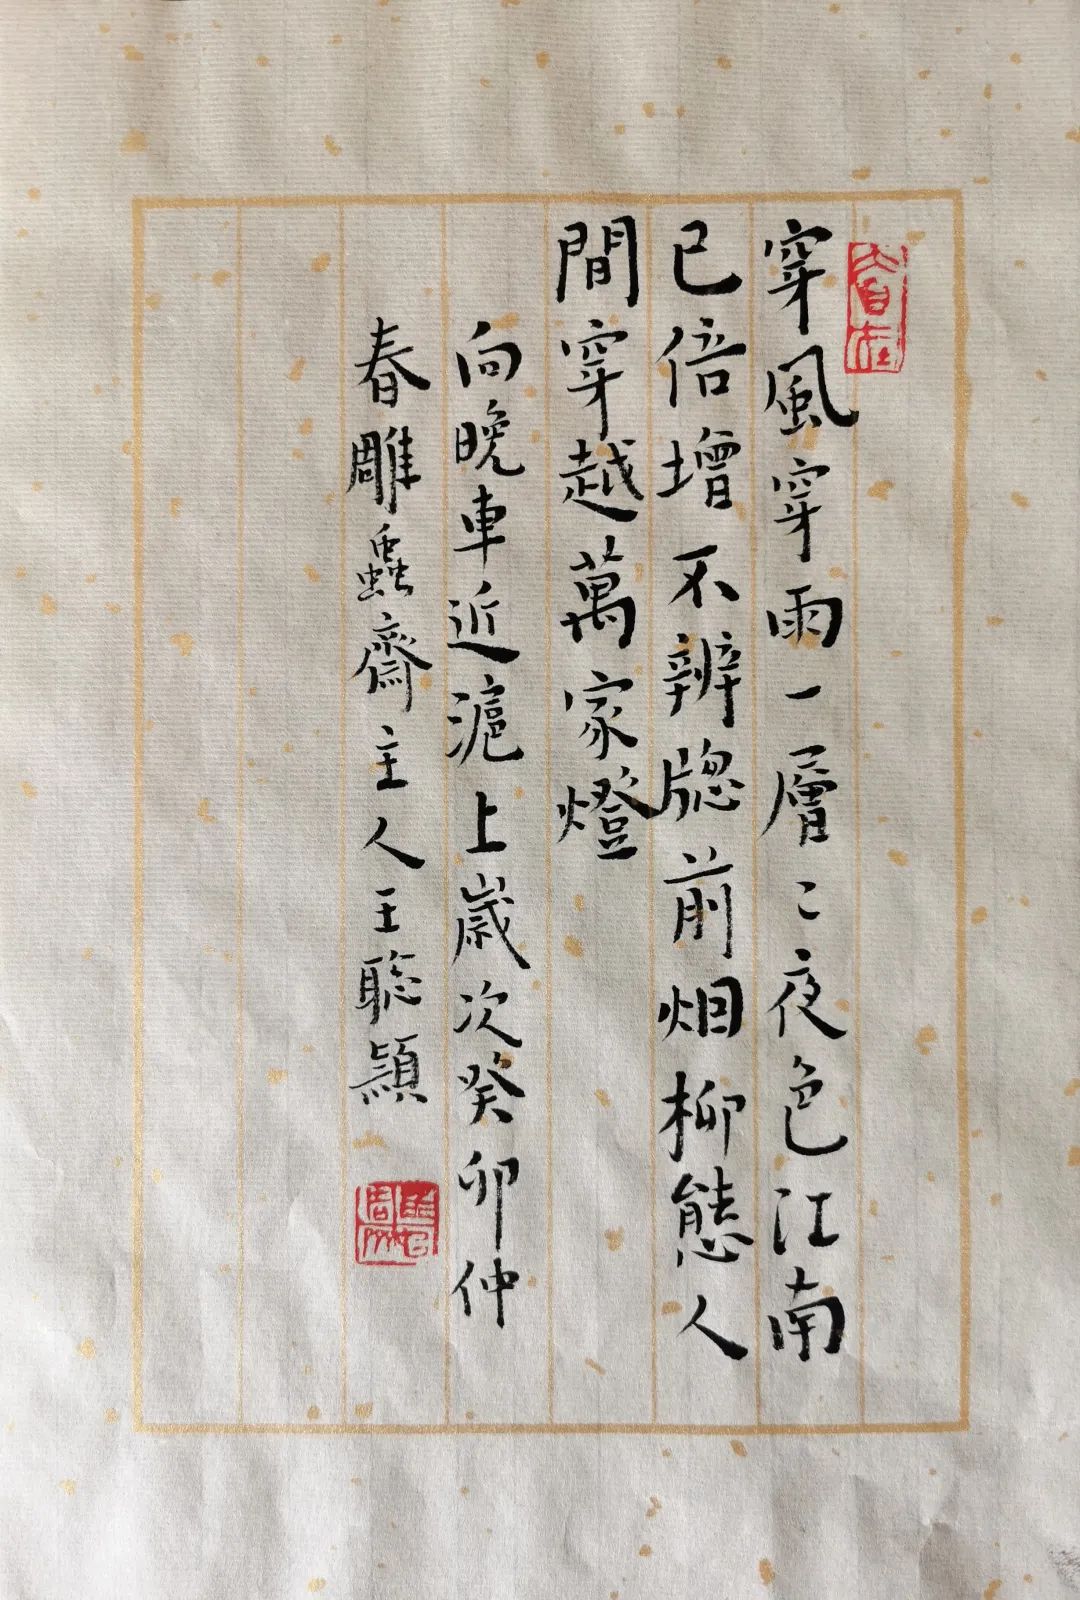 穿風穿雨一層〻夜色江南
已倍增不辨牎前烟柳態人
間穿越萬家燈
向晚車近滬上歲次癸卯仲
春雕蟲齋主人王聰穎